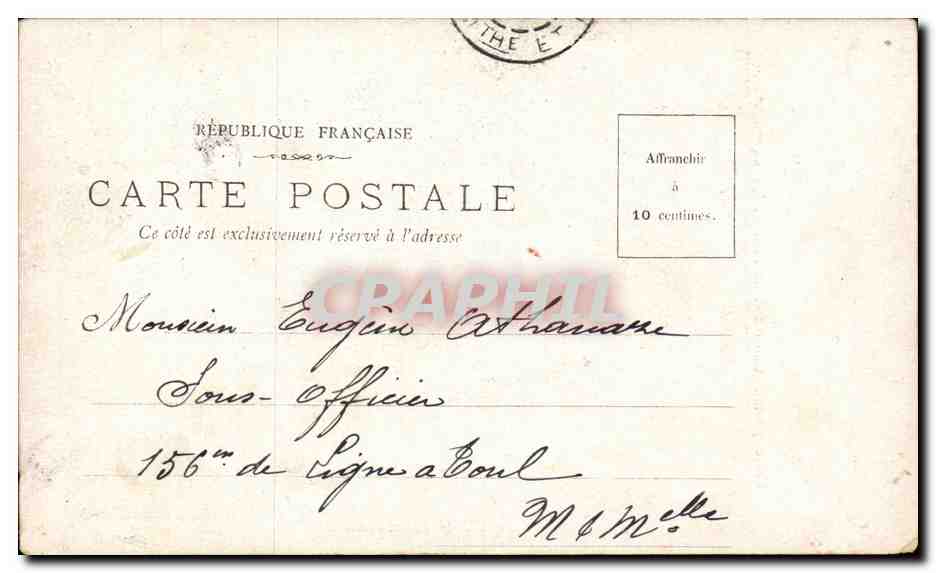 THE E
RÉPUBLIQUE FRANÇAISE
CARTE POSTALE
Ce côté est exclusivement réservé à l'adresse
Affranchir
à
10 centimes.
CRAPHIL
Monsieur Eugène Athanase
Sous-Officier
156me de Ligne a Toul
M & Melle